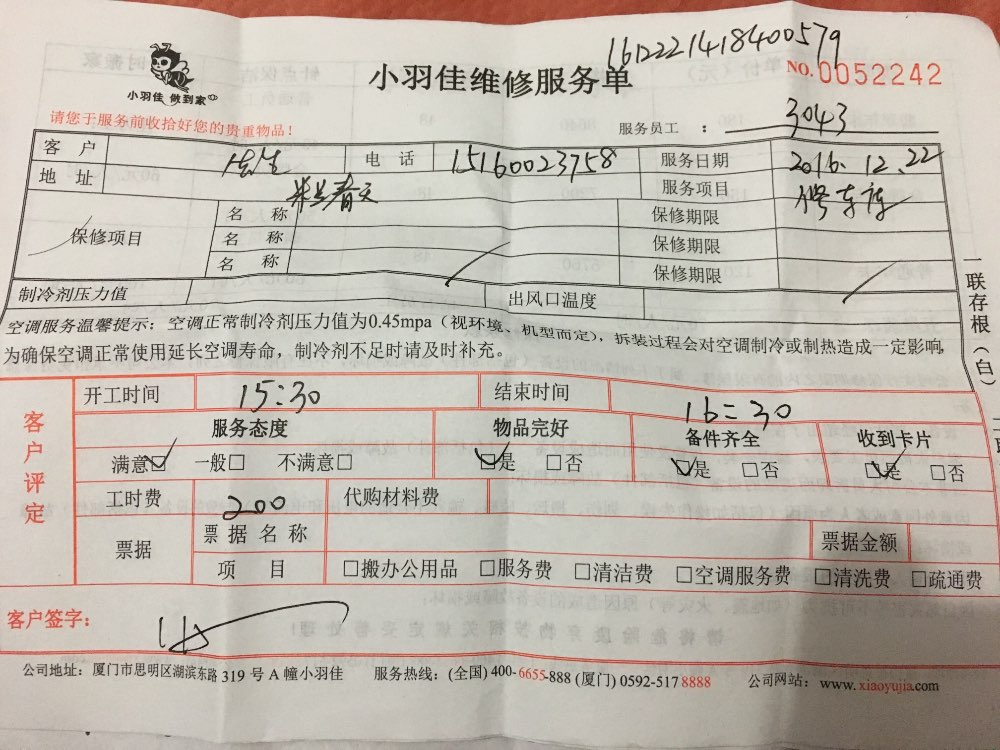 1612221418400579
小羽佳 做到家
小羽佳维修服务单
NO.0052242
请您于服务前收拾好您的贵重物品！
服务员工 ： 3043
客 户 电 话 15160023758 服务日期 2016.12.22
地 址 米兰春天 服务项目 修车库
保修项目
名 称 保修期限
名 称 保修期限
名 称 保修期限
制冷剂压力值 出风口温度
空调服务温馨提示：空调正常制冷剂压力值为0.45mpa（视环境、机型而定），拆装过程会对空调制冷或制热造成一定影响，
为确保空调正常使用延长空调寿命，制冷剂不足时请及时补充。
一联存根（白）
客户评定
开工时间 15:30 结束时间 16:30
服务态度 物品完好 备件齐全 收到卡片
满意☑ 一般□ 不满意□ ☑是 □否 ☑是 □否 ☑是 □否
工时费 200 代购材料费
票据 票 据 名 称 票据金额
项 目 □搬办公用品 □服务费 □清洁费 □空调服务费 □清洗费 □疏通费
客户签字：
公司地址：厦门市思明区湖滨东路 319 号 A 幢小羽佳 服务热线：(全国) 400-6655-888 (厦门) 0592-517 8888 公司网站：www.xiaoyujia.com